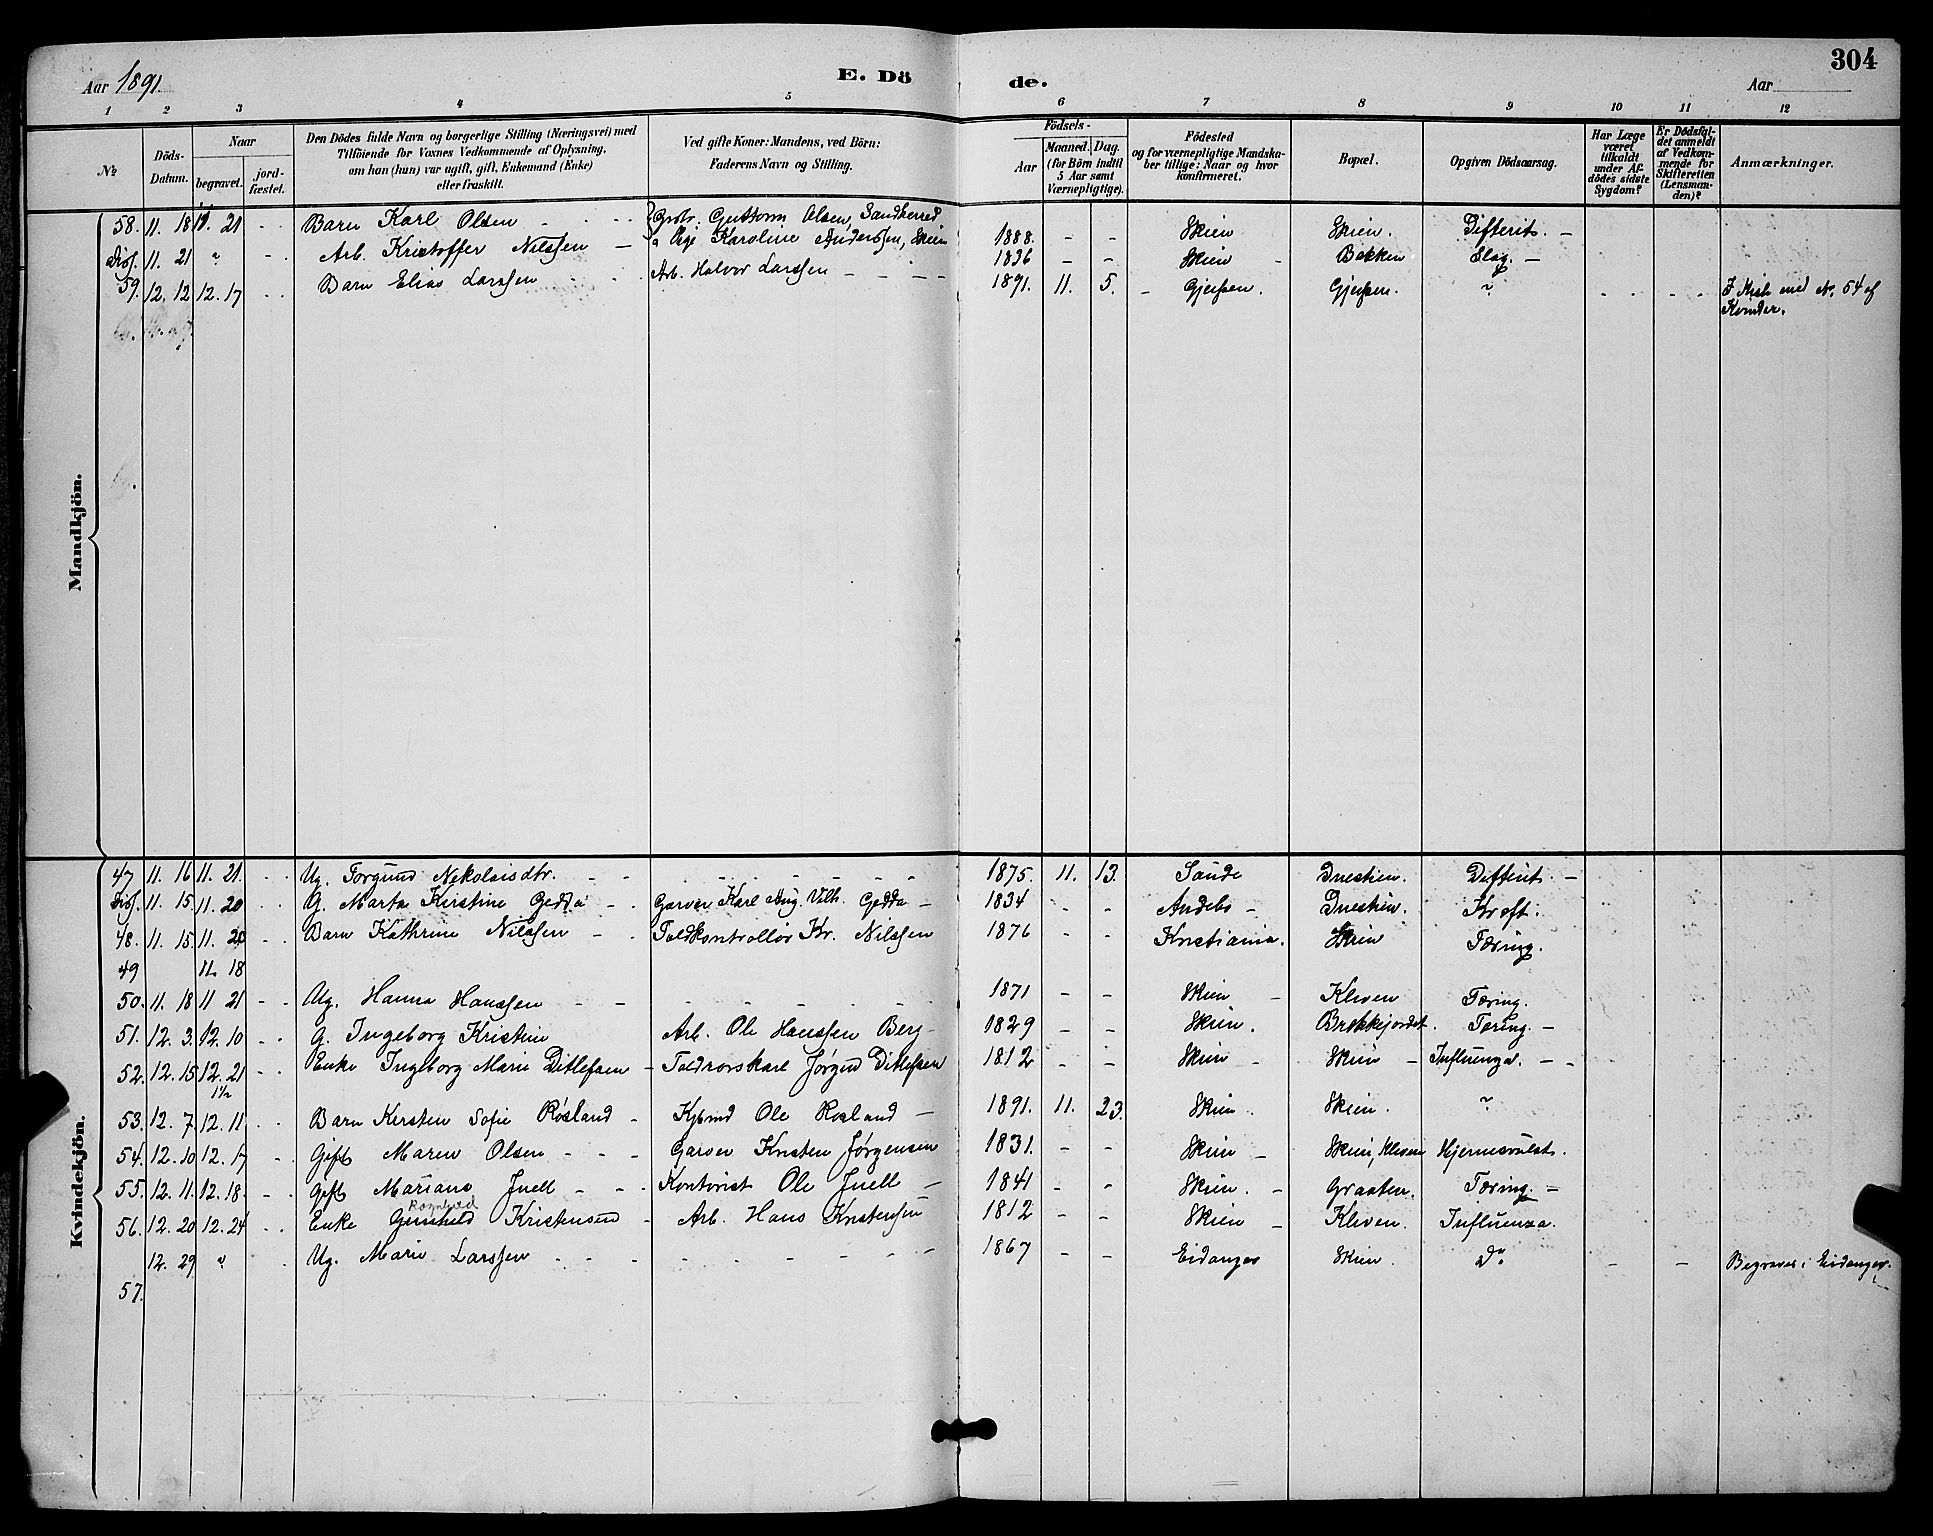 304
Aar 1891. E. Dö de. Aar
1 2 3 4 5 6 7 8 9 10 11 12
№ Döds-Datum. Naar begravet. jord-fæstet. Den Dödes fulde Navn og borgerlige Stilling (Næringsvei) med Tilföiende for Voxnes Vedkommende af Oplysning, om han (hun) var ugift, gift, Enkemand (Enke) eller fraskilt. Ved gifte Koner: Mandens, ved Börn: Faderens Navn og Stilling. Födsels- Aar Maaned. Dag. (for Börn indtil 5 Aar samt Værnepligtige). Födested og for værnepligtige Mandskaber tillige: Naar og hvor konfirmeret. Bopæl. Opgiven Dödsaarsag. Har Læge været tilkaldt under Afdödes sidste Sygdom? Er Dödsfaldet anmeldt af Vedkommende for Skifteretten (Lensmanden)? Anmærkninger.
Mandkjön.
58. 11. 18 11. 21 - - Barn Karl Olsen - - - Guttorm Olsen, Sandherred
a Pige Karoline Anderssen, Skien 1888. - - Skien Skien. Difterit. -
Disf. 11. 21 " - - Arb. Kristoffer Nilssen - 1836 - - Skien - Bakken Slag. -
59. 12. 12 12. 17 - - Barn Elias Larssen - - Arb. Halvor Larssen - - - - 1891. 11. 5. - Gjerpen. Gjerpen. ? - - - - I Kiste med No. 54 af
Kvinder.
Kvindekjön.
47 11. 16 11. 21. - - Ug. Torgund Nikolaisdtr. - - - - - - - - 1875. 11. 13. Saude Duestien. Difterit. -
Disf. 11. 15 11. 20 - - G. Marta Kirstine Gedda - - Garver Karl Aug. Vilh. Gedda - 1834 - - Andebo - Duestien. Kræft.
48. 11. 15 11. 20 - - Barn Kathrine Nilssen - - Toldkontrollør Kr. Nilssen 1876 - - Kristiania. Skien Tæring.
49 11. 18
50. 11. 18 11 21 - - Ug. Hanna Hanssen - - - - - - - - 1871 - - Skien - Kleven Tæring.
51. 12. 3. 12. 10 - - G. Ingeborg Kristine Arb. Ole Hanssen Berg - 1829 - - Skien. Brekkejordet. Tæring. -
52. 12. 15 12. 21 - - Enke Ingeborg Marie Ditlefsen - Toldrorskarl Jørgen Ditlefsen 1812 - - Skien - Skien - Influenza. - -
53. 12. 7 12. 11. - - Barn Kirsten Sofie Røsland - Kjøbmd Ole Rosland - 1891. 11. 23. Skien. Skien. ?
54. 12. 10 12. 17 - - Gift Maren Olsen - - - Garver Kristen Jørgensen 1831. - - Skien - Skien, Kleven Hjernesvulst.
55. 12. 11. 12. 18. - - Gift Mariane Juell - - - Kontorist Ole Juell - 1841 - - Skien. - Graaten. Tæring. -
Rognhild
56. 12. 20 12. 24 - - Enke Gunhild Kristensen - Arb. Hans Kristensen 1812 - - Skien - Kleven. Influenza.
12. 29 " - - Ug. Marie Larssen - - - - - - - - 1867 - - Eidanger Skien. Do - - Begraves i Eidanger.
57.